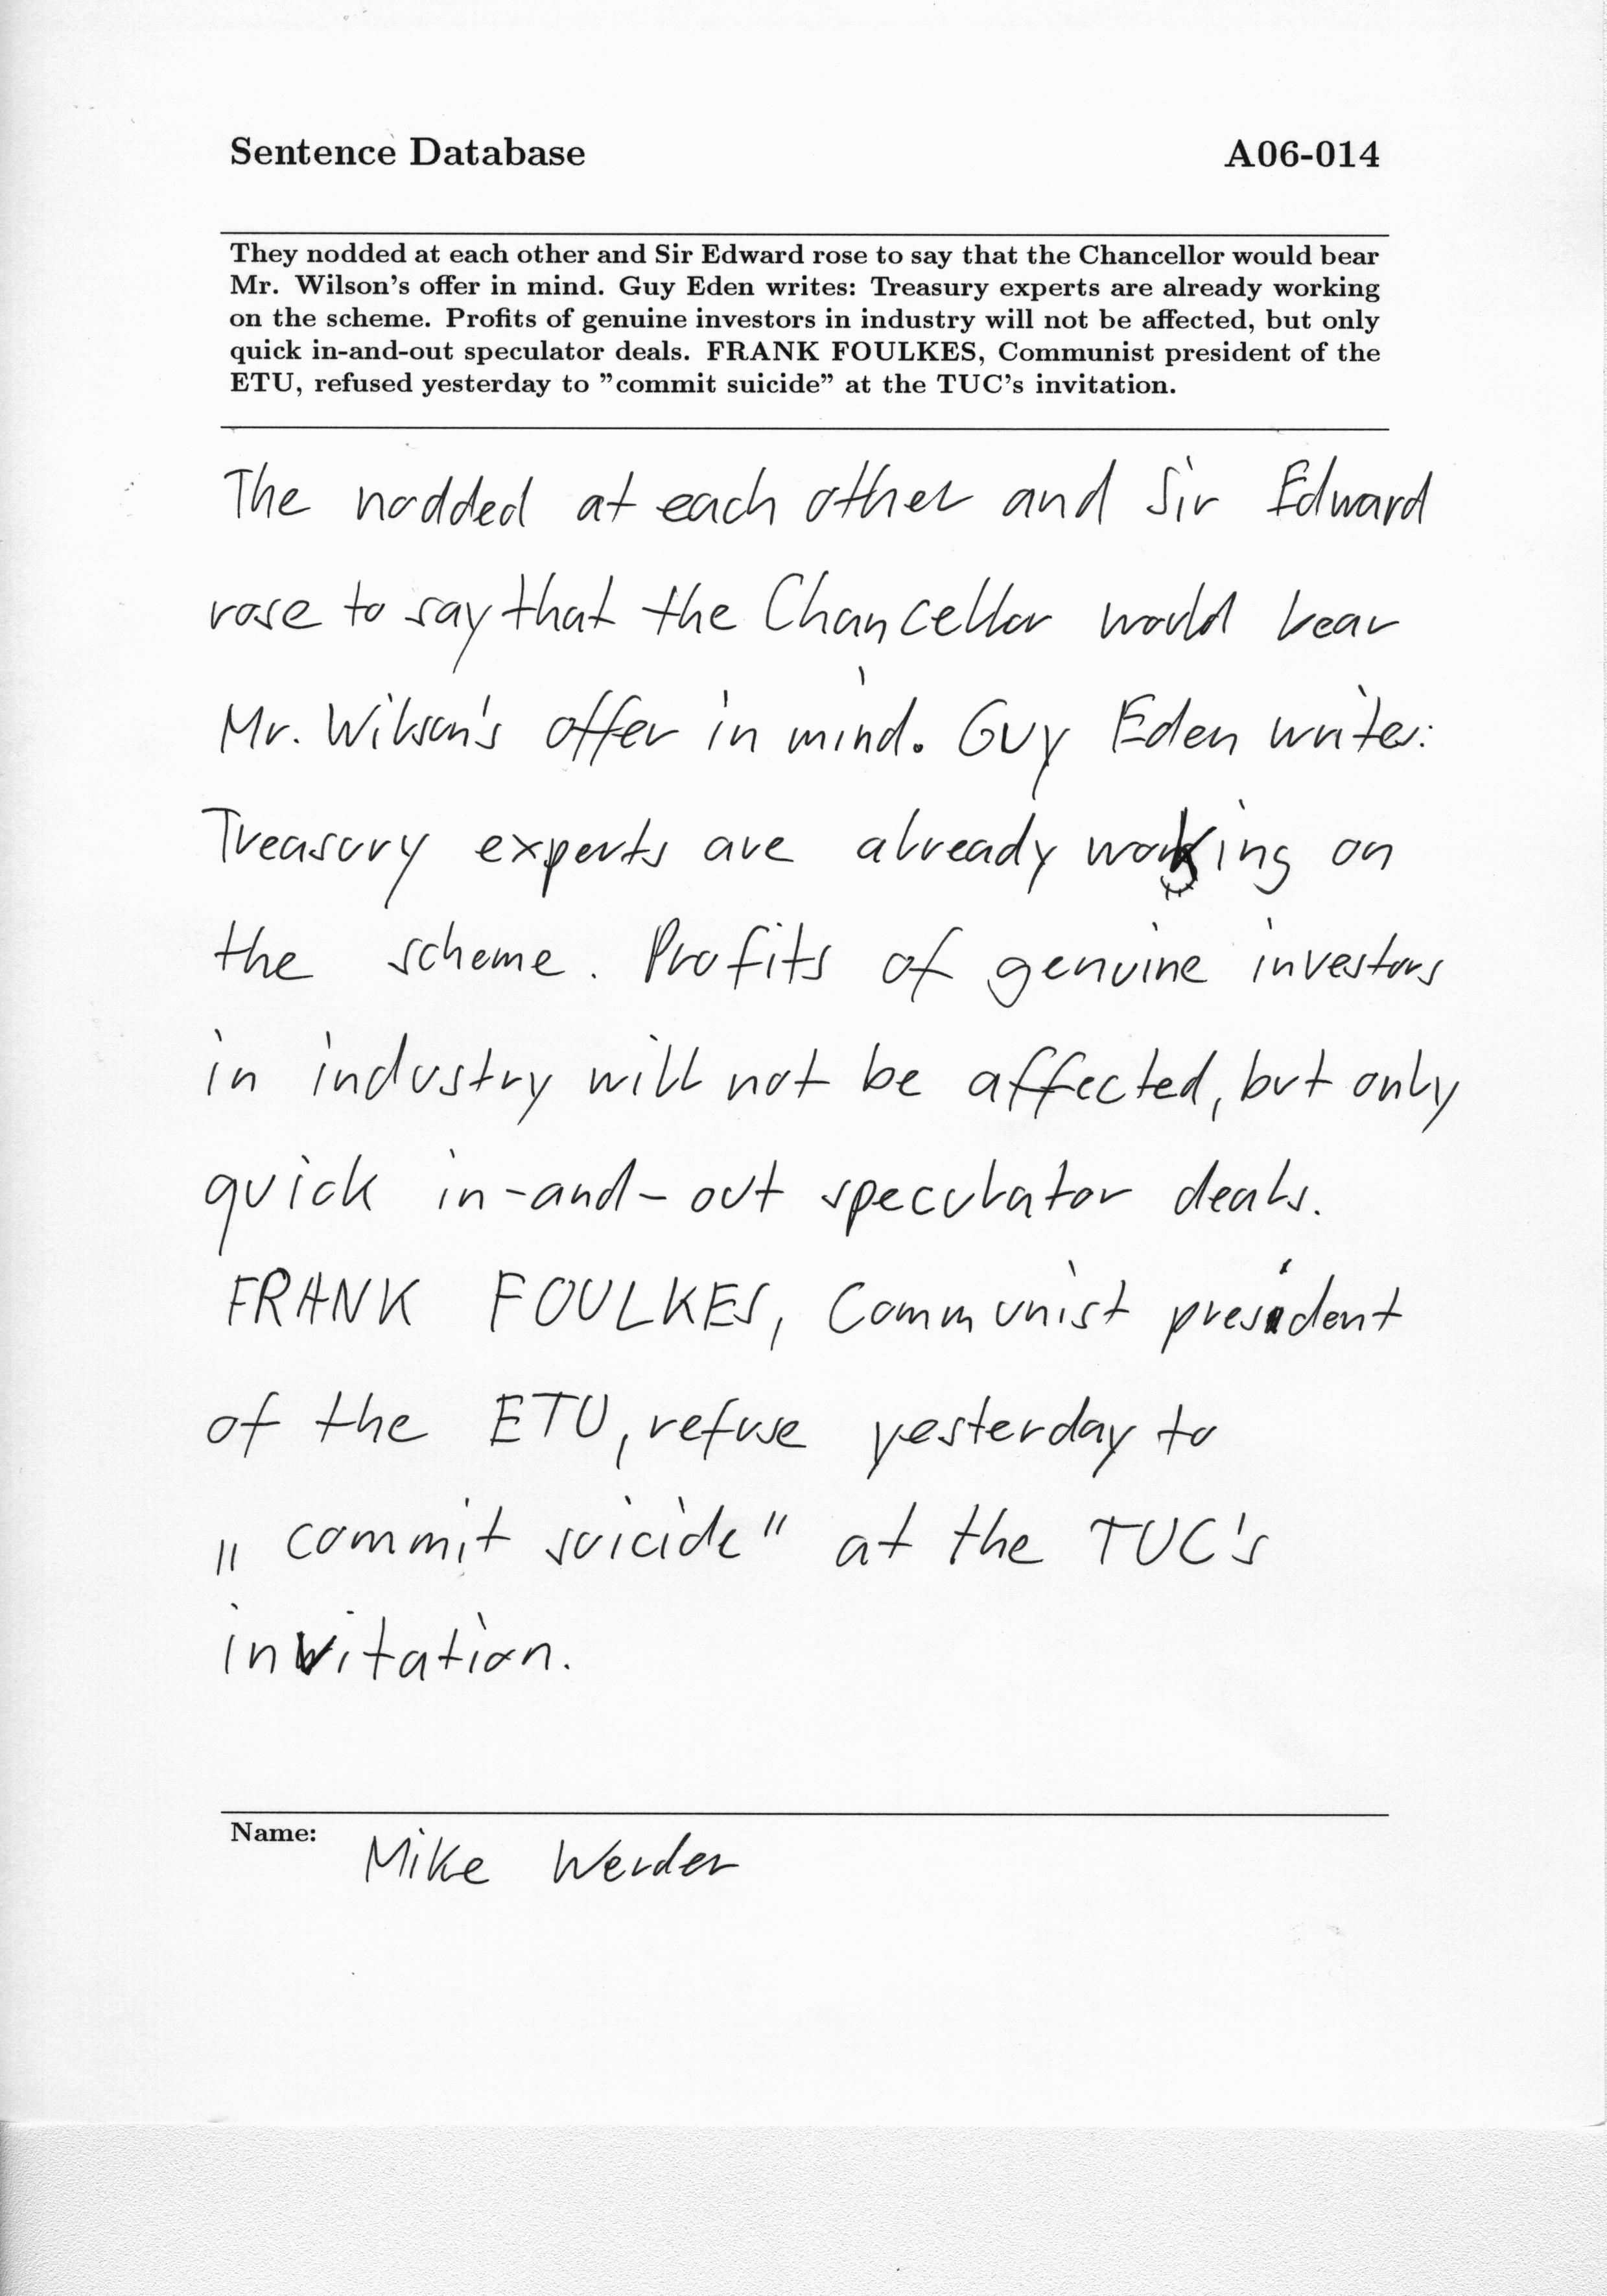 Sentence Database A06-014
They nodded at each other and Sir Edward rose to say that the Chancellor would bear
Mr. Wilson's offer in mind. Guy Eden writes: Treasury experts are already working
on the scheme. Profits of genuine investors in industry will not be affected, but only
quick in-and-out speculator deals. FRANK FOULKES, Communist president of the
ETU, refused yesterday to "commit suicide" at the TUC's invitation.
The nodded at each other and Sir Edward
rose to say that the Chancellor would bear
Mr. Wilson's offer in mind. Guy Eden writes:
Treasury experts are already working on
the scheme. Profits of genuine investors
in industry will not be affected, but only
quick in-and-out speculator deals.
FRANK FOULKES, Communist president
of the ETU, refuse yesterday to
„commit suicide" at the TUC's
invitation.
Name: Mike Werder